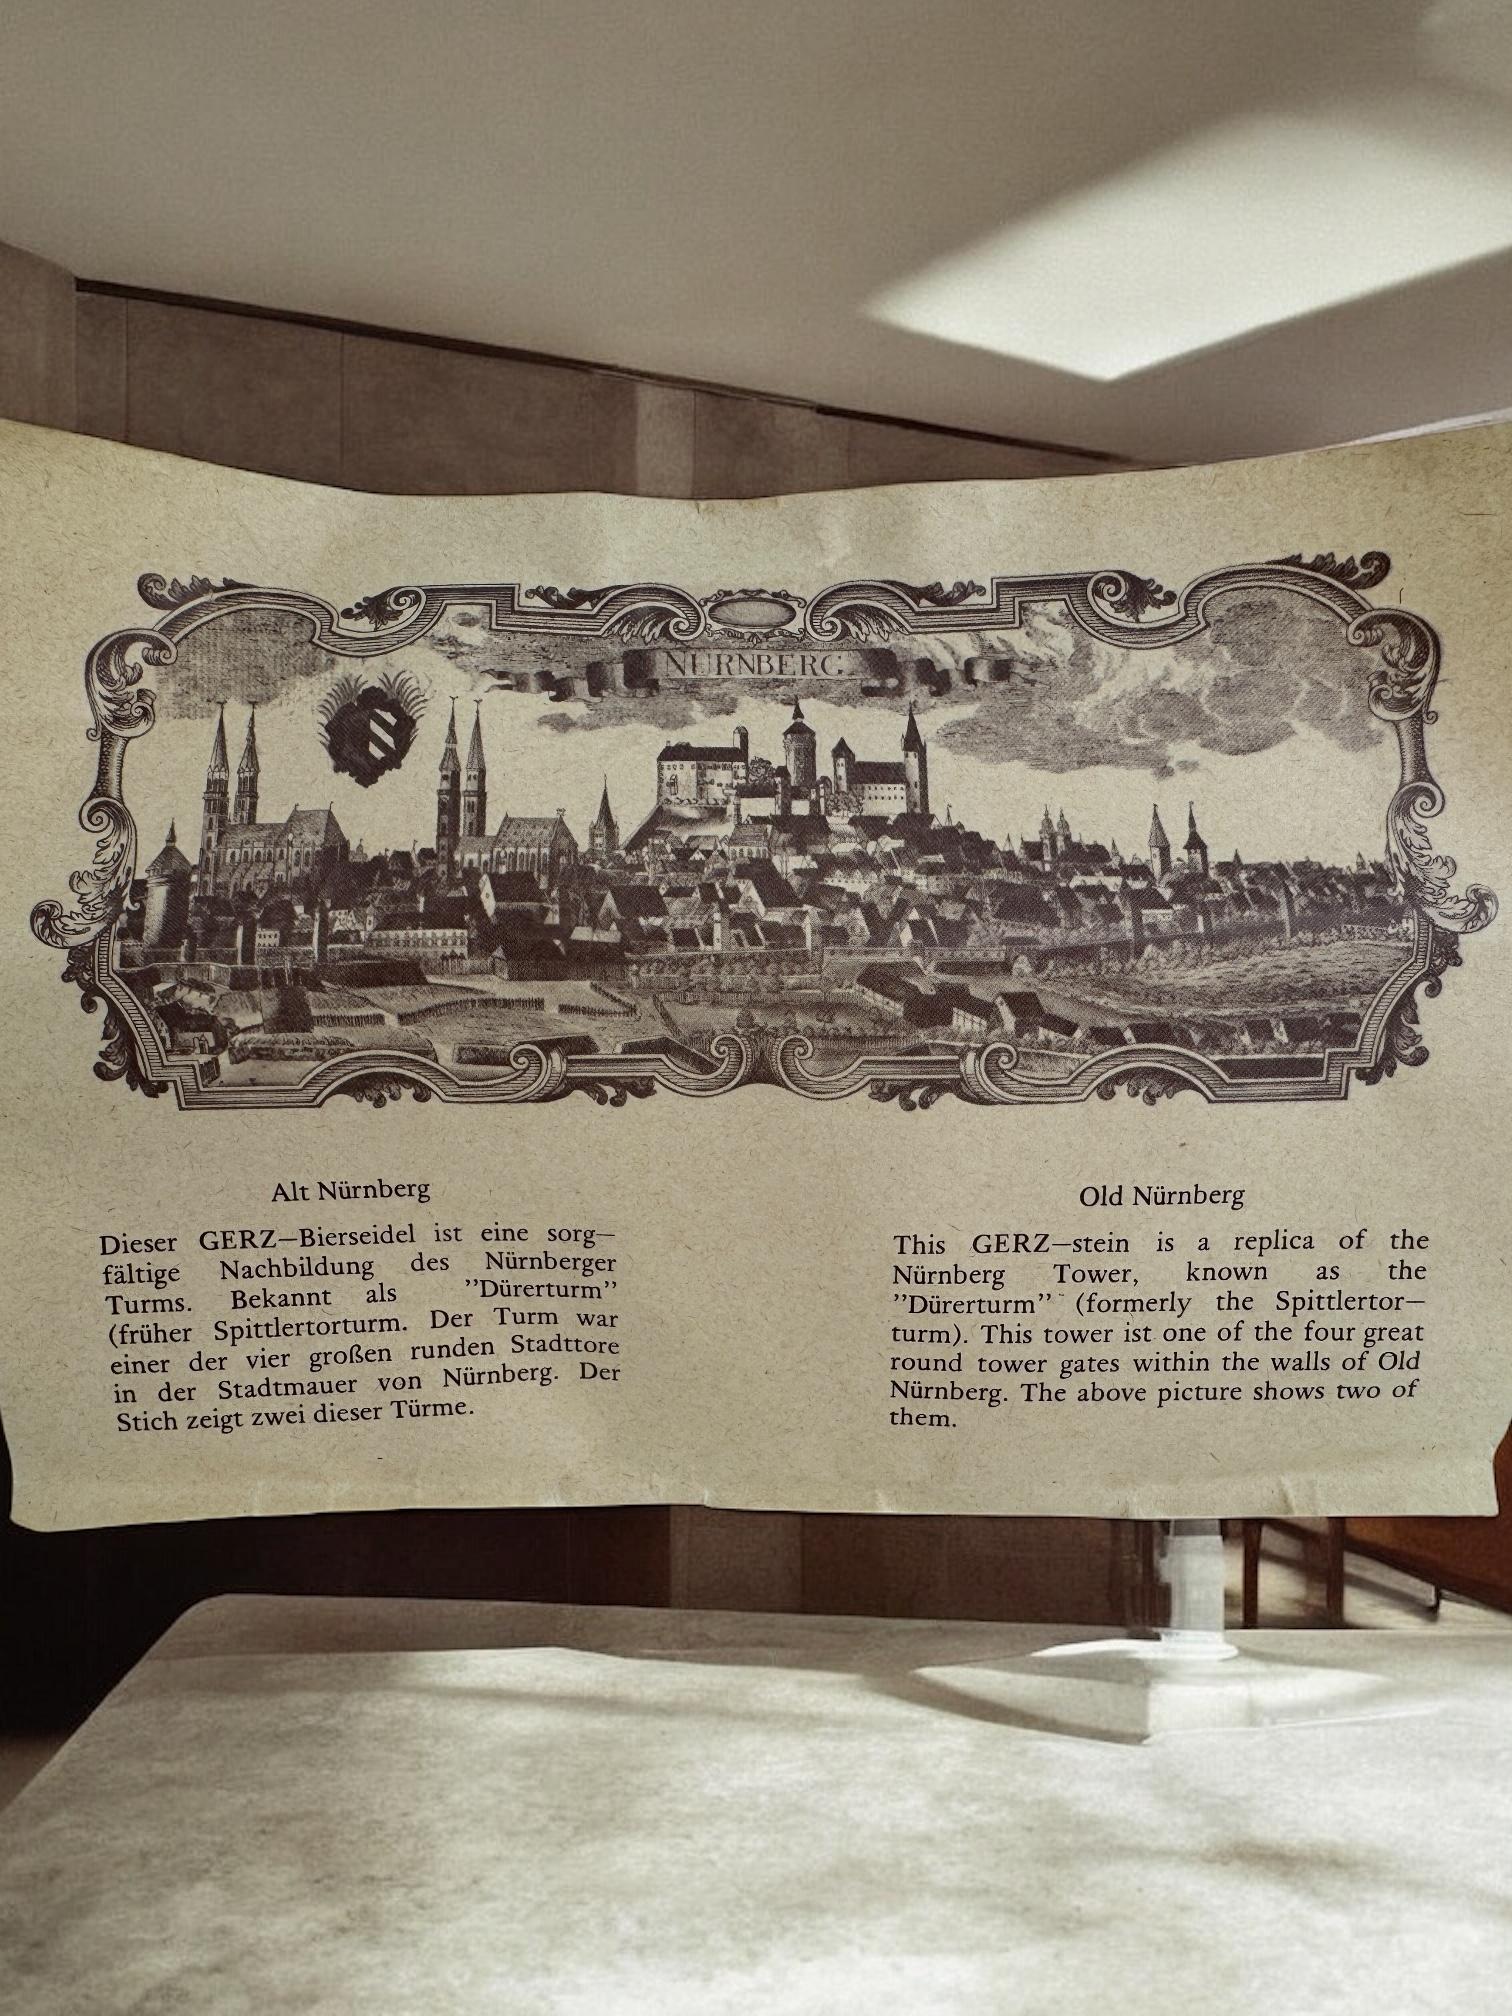 NÜRNBERG
Alt Nürnberg
Dieser GERZ—Bierseidel ist eine sorg—
fältige Nachbildung des Nürnberger
Turms. Bekannt als ”Dürerturm”
(früher Spittlertorturm. Der Turm war
einer der vier großen runden Stadttore
in der Stadtmauer von Nürnberg. Der
Stich zeigt zwei dieser Türme.
Old Nürnberg
This GERZ—stein is a replica of the
Nürnberg Tower, known as the
”Dürerturm” (formerly the Spittlertor—
turm). This tower ist one of the four great
round tower gates within the walls of Old
Nürnberg. The above picture shows two of
them.